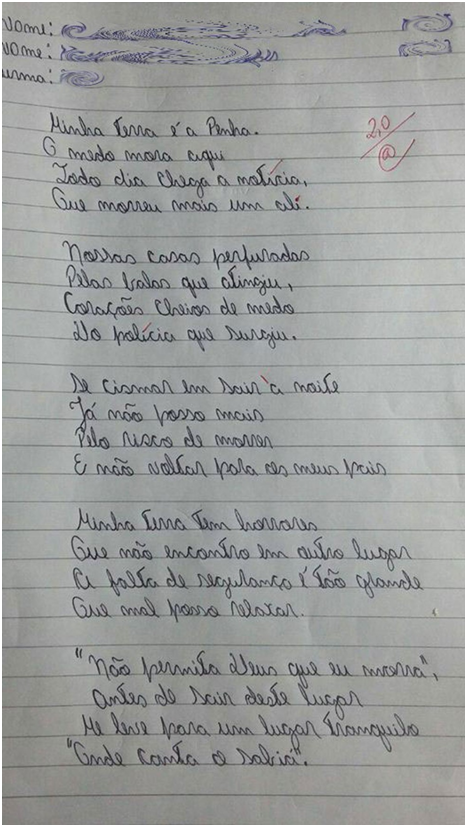 Nome:
Nome:
urma:
2,0
Minha terra é a Penha.
O medo mora aqui
Todo dia chega a notícia,
Que morreu mais um ali.
Nossas casas perfuradas
Pelas balas que atingiu,
Corações cheios de medo
Do polícia que surgiu.
Se cismar em sair à noite
Já não posso mais
Pelo risco de morrer
E não voltar para os meus pais
Minha terra tem horrores
Que não encontro em outro lugar
A falta de segurança é tão grande
Que mal posso relaxar.
"Não permita Deus que eu morra",
Antes de sair deste lugar
Me leve para um lugar tranquilo
"Onde canta o sabiá".